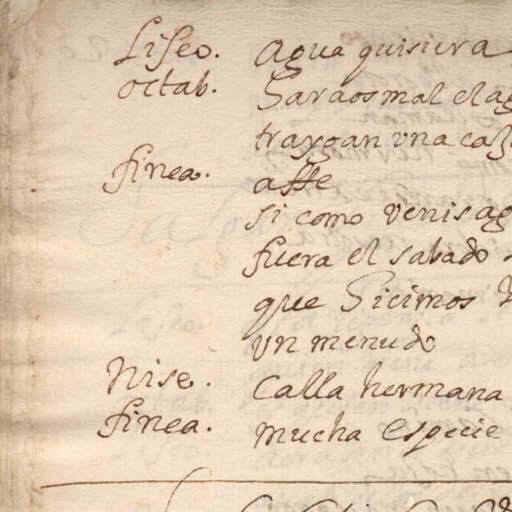 Liseo. Agua quisiera
octab. Haraos mal el ag
traygan vna caz
finea. affe
si como venis ag
fuera el sabado
que Hicimos
vn menudo
Nise. Calla hermana
finea. mucha especie